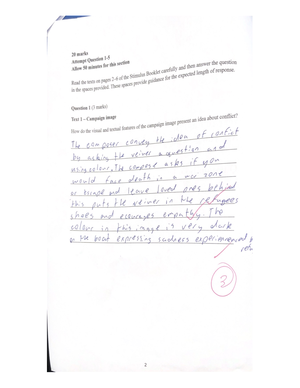 20 marks
Attempt Question 1-5
Allow 50 minutes for this section
Read the texts on pages 2-6 of the Stimulus Booklet carefully and then answer the question
in the spaces provided. These spaces provide guidance for the expected length of response.
Question 1 (3 marks)
Text 1 – Campaign image
How do the visual and textual features of the campaign image present an idea about conflict?
The composer conveys the idea of conflict
by asking the veiwer a question and
using colour. The composer asks if you
would face death in a war zone
or escape and leave loved ones behind
this puts the veiwer in the refugees
shoes and encourages empathy. The
colour in this image is very dark
the boat expressing sadness
2